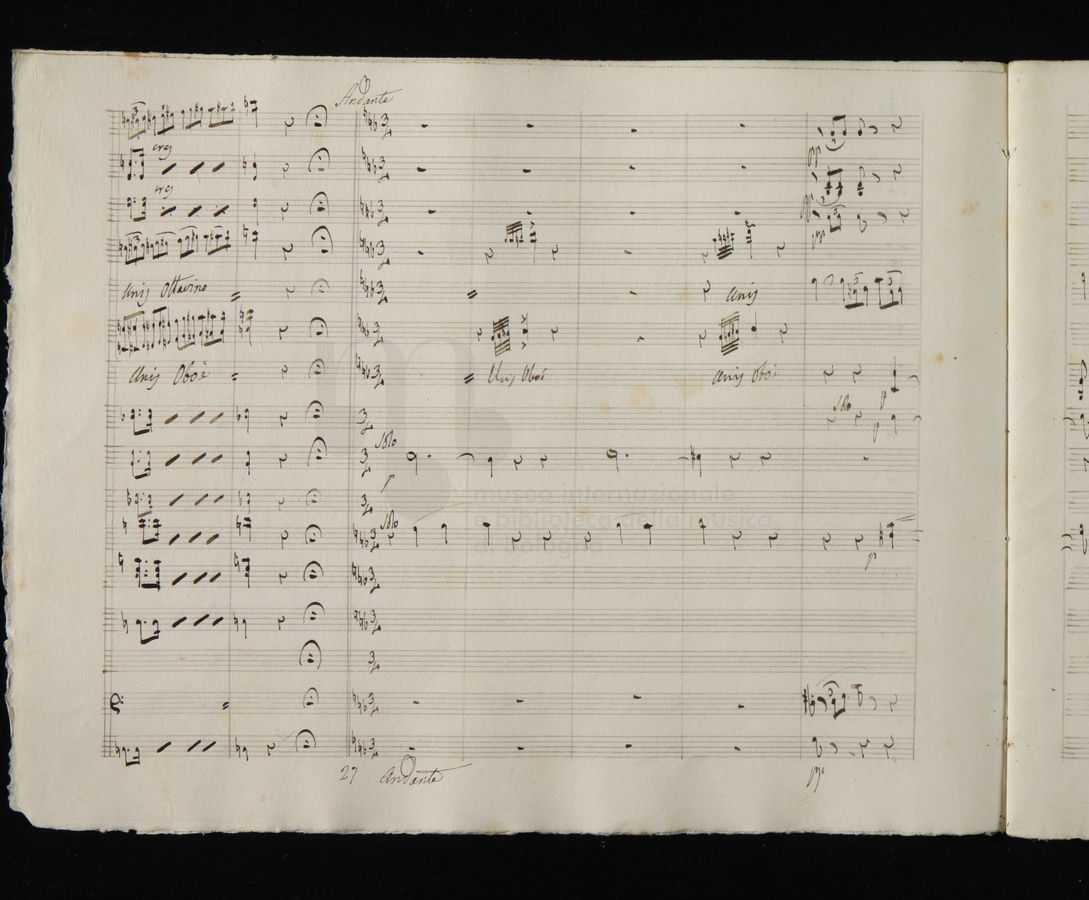 Andante
cres
cres
unis Ottavino
unis
unis Oboè
Unis Oboi
unis Oboi
Solo
p
p
Solo
p
Solo
p
museo internazionale
e biblioteca della musica
di Bologna
27 Andante